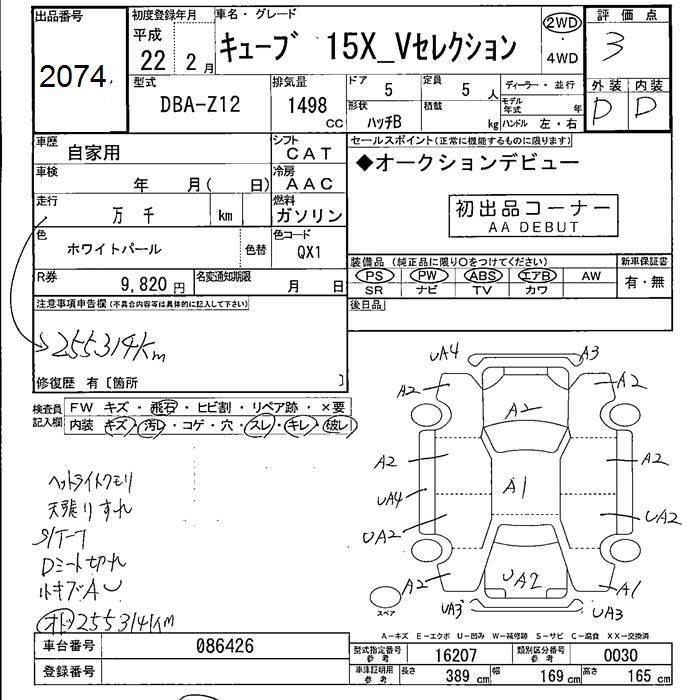 出品番号
2074
初度登録年月
平成
22 2月
車名・グレード
キューブ 15X_Vセレクション
2WD
・
4WD
評価点
3
型式
DBA-Z12
排気量
1498
CC
ドア 5
定員 5 人
形状 ハッチB
積載 kg
ディーラー・並行
モデル年式 年
ハンドル 左・右
外装 内装
D D
車歴 自家用
シフト
CAT
車検 年 月( 日)
冷房
AAC
走行 万 千 km
燃料
ガソリン
色 ホワイトパール 色替
色コード
QX1
R券 9,820 円
名変通知期限 月 日
セールスポイント(正常に機能するものに限ります)
◆オークションデビュー
初出品コーナー
AA DEBUT
装備品(純正品に限り○をつけてください)
PS PW ABS エアB AW
SR ナビ TV カワ
新車保証書
有・無
後日品
注意事項申告欄(不具合内容等は具体的に記入して下さい)
255314Km
修復歴 有〔箇所 〕
検査員
記入欄
FW キズ・飛石・ヒビ割・リペア跡・×要
内装 キズ・汚レ・コゲ・穴・スレ・キレ・破レ
ヘットライトクモリ
天張りすれ
S/T-7
Dミート切れ
255314Km
UA4 A3
A2 A2
A2
A2 A1 A2
UA4
UA2 UA2
A2 UA2 A1
UA3 UA3
スペア
A-キズ E-エクボ U-凹み W-補修跡 S-サビ C-腐食 XX-交換済
車台番号 086426
登録番号
型式指定番号
参考
16207
類別区分番号
参考
0030
車庫証明用
参考
長さ 389 cm 幅 169 cm 高さ 165 cm